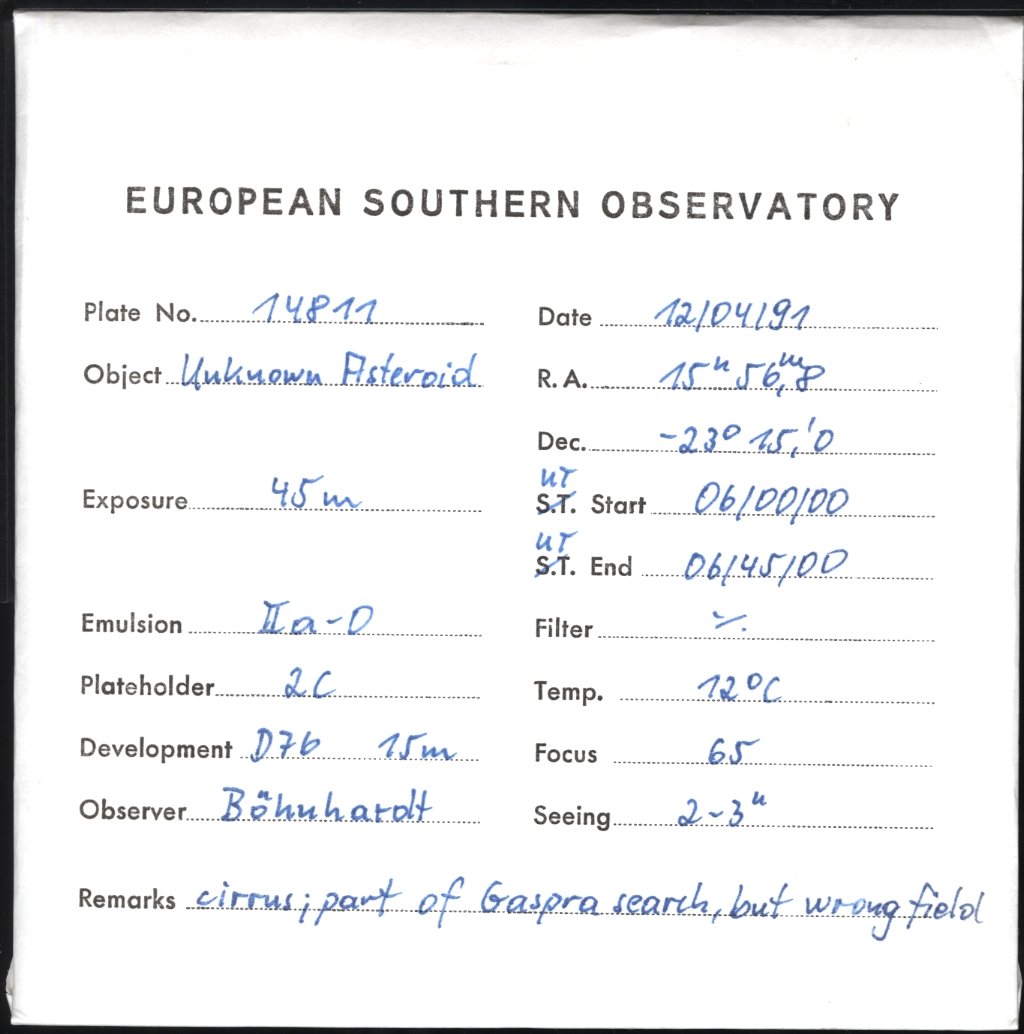 EUROPEAN SOUTHERN OBSERVATORY
Plate No. 14811 Date 12/04/91
Object Unknown Asteroid R.A. 15h 56m,8
Dec. -23° 15,'0
UT
Exposure 45m S.T. Start 06/00/00
UT
S.T. End 06/45/00
Emulsion IIa-O Filter ·/.
Plateholder 2C Temp. 12°C
Development D76 15m Focus 65
Observer Böhnhardt Seeing 2-3"
Remarks cirrus; part of Gaspra search, but wrong field